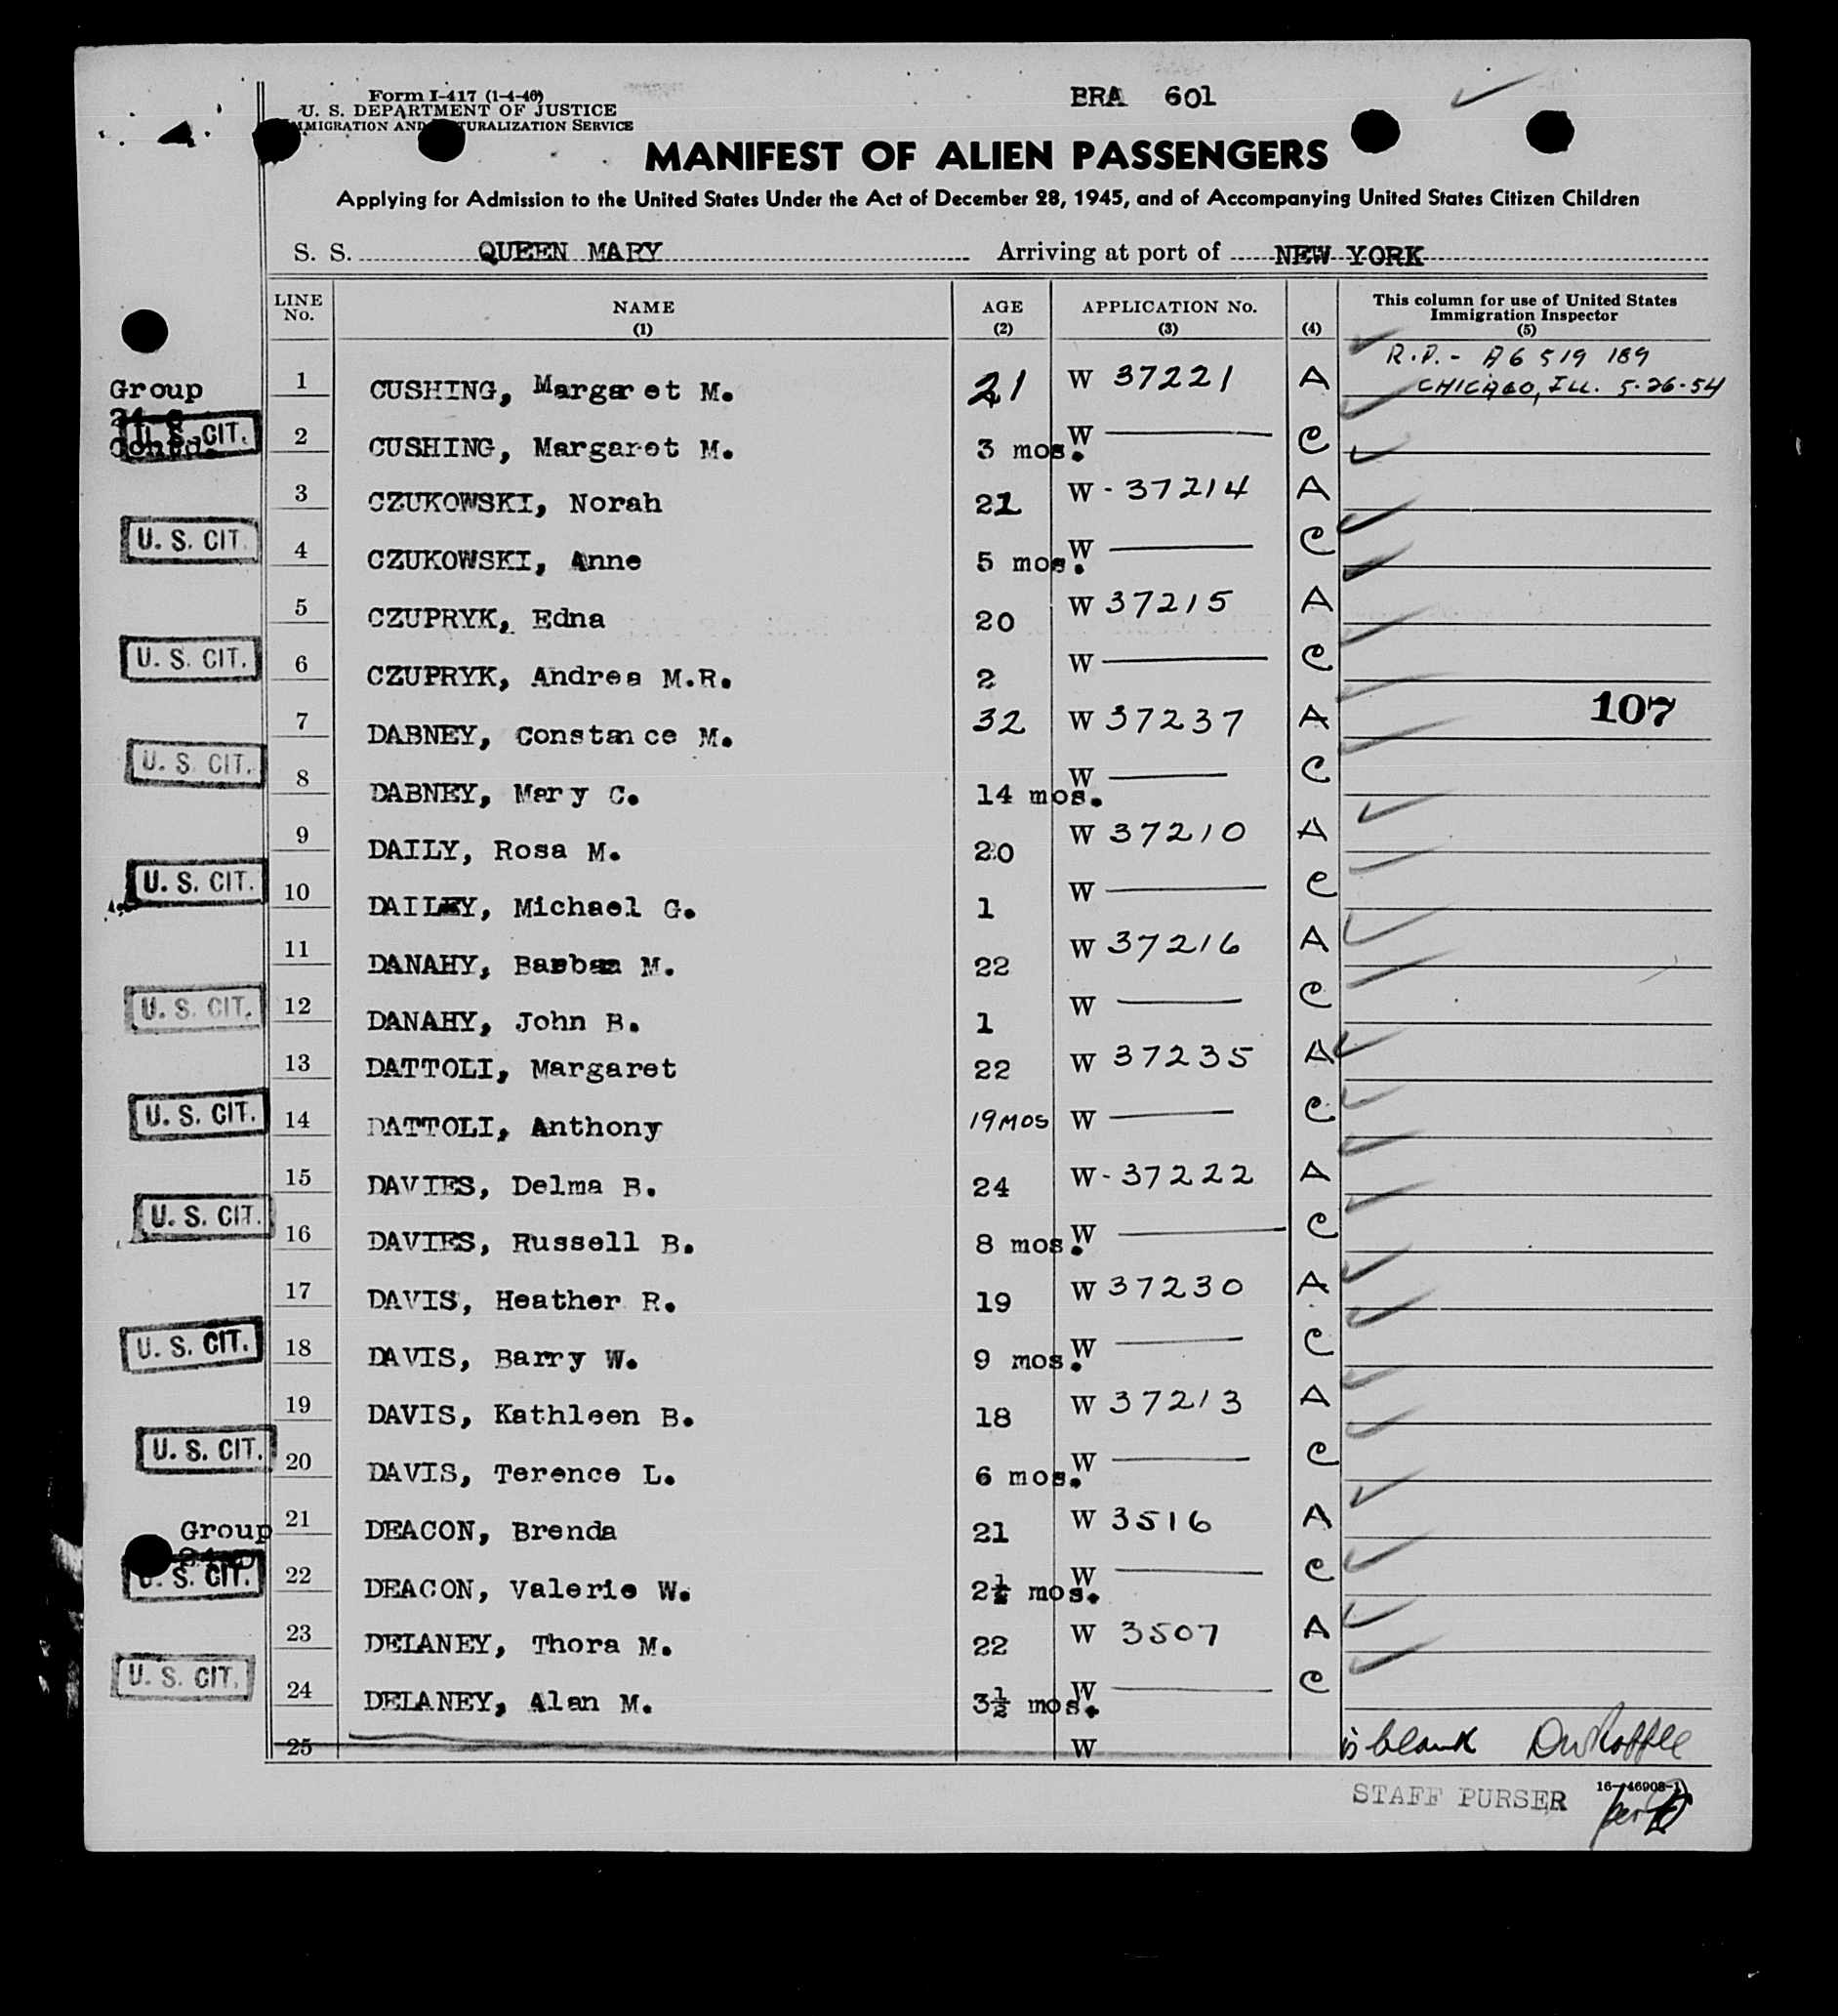 Form I-417 (1-4-46)
U. S. DEPARTMENT OF JUSTICE
IMMIGRATION AND NATURALIZATION SERVICE
BRA 601
MANIFEST OF ALIEN PASSENGERS
Applying for Admission to the United States Under the Act of December 28, 1945, and of Accompanying United States Citizen Children
S. S. QUEEN MARY Arriving at port of NEW YORK
LINE No. NAME (1) AGE (2) APPLICATION No. (3) (4) This column for use of United States Immigration Inspector (5)
R.P.- A6 519 189
Group 1 CUSHING, Margaret M. 21 W 37221 A CHICAGO, ILL. 5-26-54
Contd. U. S. CIT. 2 CUSHING, Margaret M. 3 mos. W C
3 CZUKOWSKI, Norah 21 W - 37214 A
U. S. CIT. 4 CZUKOWSKI, Anne 5 mos. W C
5 CZUPRYK, Edna 20 W 37215 A
U. S. CIT. 6 CZUPRYK, Andrea M.R. 2 W C
107
7 DABNEY, Constance M. 32 W 37237 A
U. S. CIT. 8 DABNEY, Mary C. 14 mos. W C
9 DAILY, Rosa M. 20 W 37210 A
U. S. CIT. 10 DAILEY, Michael G. 1 W C
11 DANAHY, M. 22 W 37216 A
U. S. CIT. 12 DANAHY, John B. 1 W C
13 DATTOLI, Margaret 22 W 37235 A
U. S. CIT. 14 DATTOLI, Anthony 19 MOS W C
15 DAVIES, Delma B. 24 W - 37222 A
U. S. CIT. 16 DAVIES, Russell B. 8 mos. W C
17 DAVIS, Heather R. 19 W 37230 A
U. S. CIT. 18 DAVIS, Barry W. 9 mos. W C
19 DAVIS, Kathleen B. 18 W 37213 A
U. S. CIT. 20 DAVIS, Terence L. 6 mos. W C
Group 21 DEACON, Brenda 21 W 3516 A
U. S. CIT. 22 DEACON, Valerie W. 2½ mos. W C
23 DELANEY, Thora M. 22 W 3507 A
U. S. CIT. 24 DELANEY, Alan M. 3½ mos. W C
25 W is blank
STAFF PURSER 16-46908-1
per